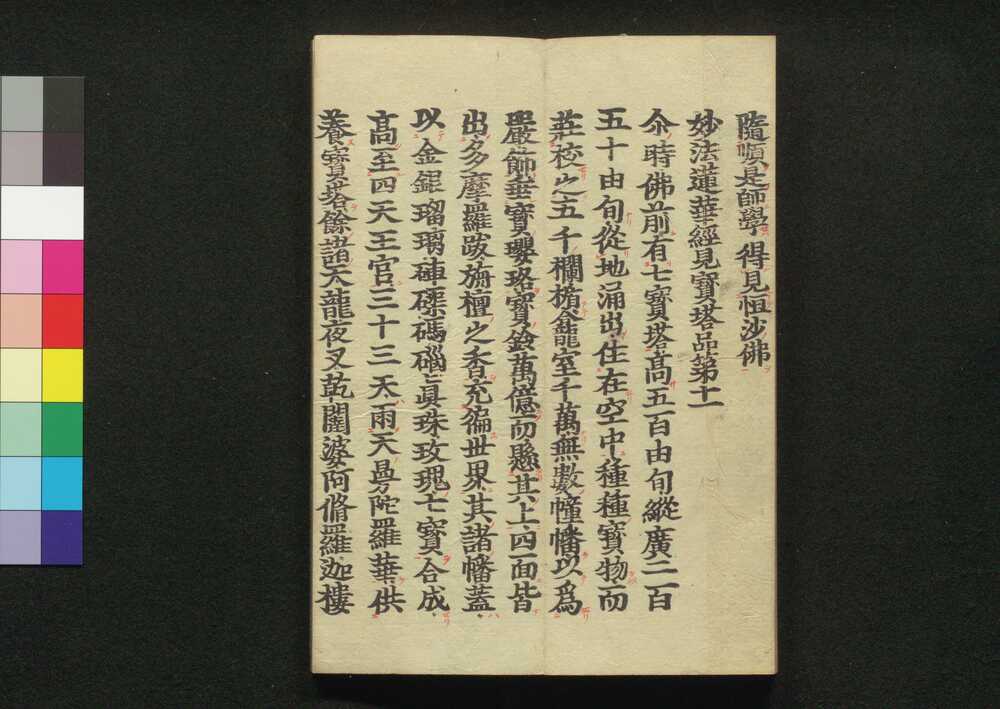 隨順是師學 得見恒沙佛
妙法蓮華經見寶塔品第十一
尒時佛前有七寶塔髙五百由旬縱廣二百
五十由旬從地涌出住在空中種種寶物而
莊校之五千欄楯龕室千萬無數幢幡以爲
嚴飾垂寶瓔珞寶鈴萬億而懸其上四面皆
出多摩羅跋栴檀之香充徧世界其諸幡蓋
以金銀瑠璃硨磲碼碯眞珠玫瑰七寶合成
髙至四天王宮三十三天雨天曼陀羅華供
養寶塔餘諸天龍夜叉乾闥婆阿脩羅迦樓